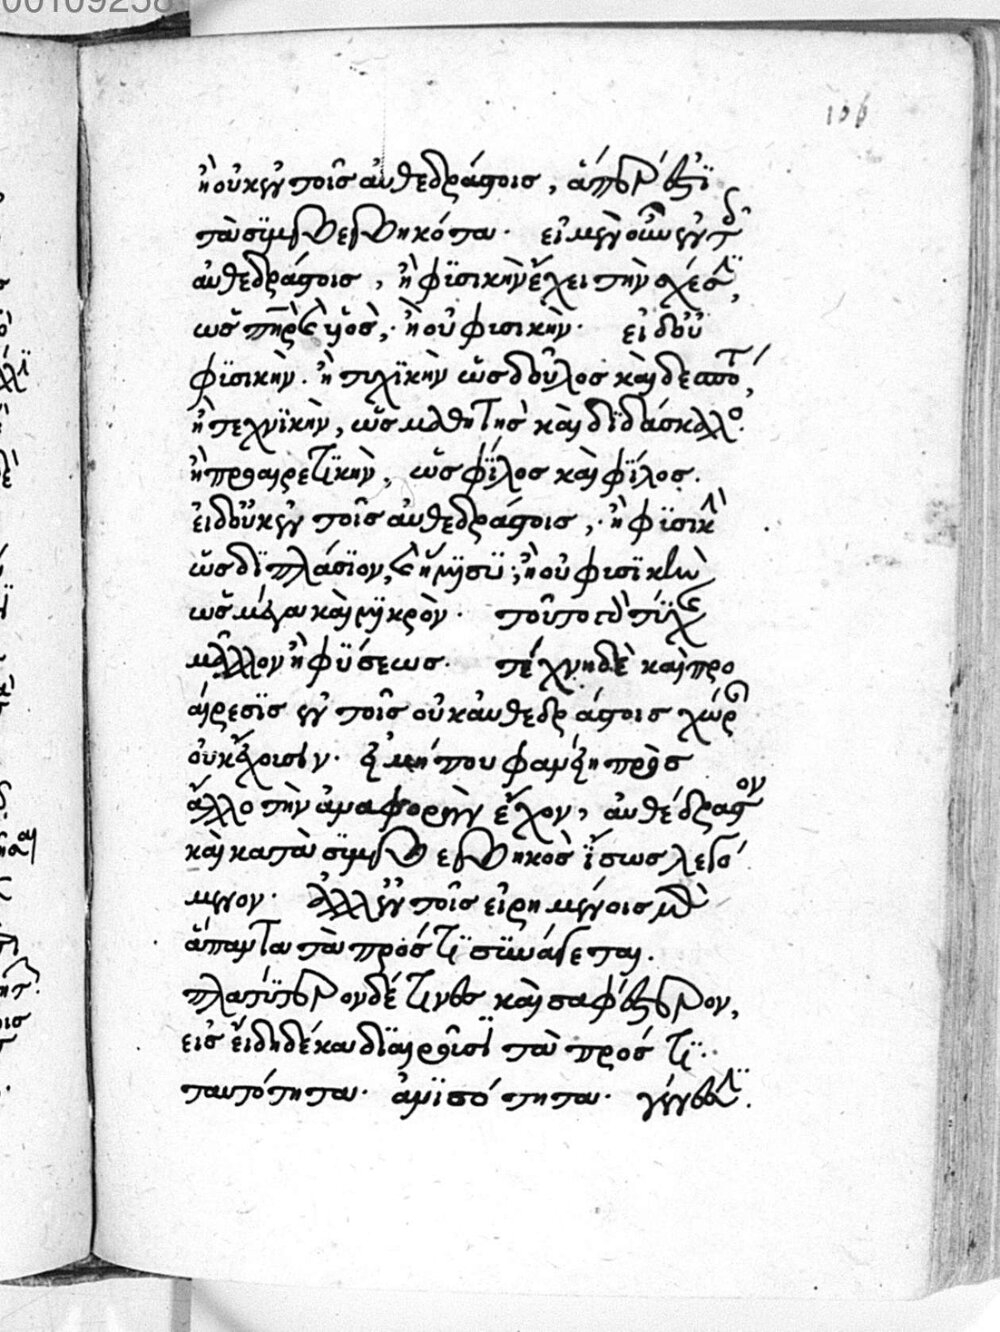 00109258
106
ἢ οὐκ ἐν τοῖς αὐθεδράστοις, ἅπερ ἐστὶ
τὰ συμβεβηκότα. εἰ μὲν οὖν ἐν τοῖς
αὐθεδράστοις, ἢ φυσικὴν ἔχει τὴν σχέσιν,
ὡς πατὴρ καὶ υἱὸς, ἢ οὐ φυσικὴν. εἰ δ' οὐ
φυσικὴν. ἢ τυχικὴν ὡς δοῦλος καὶ δεσπότης,
ἢ τεχνικὴν, ὡς μαθητὴς καὶ διδάσκαλος.
ἢ προαιρετικὴν, ὡς φίλος καὶ φίλος.
εἰ δ' οὐκ ἐν τοῖς αὐθεδράστοις, ἢ φυσικὴ
ὡς διπλάσιον, καὶ ἥμισυ, ἢ οὐ φυσικὴ
ὡς μέγα καὶ μικρὸν. τοῦτο τὸ τύχης
μᾶλλον ἢ φύσεως. τέχνη δὲ καὶ προ
αίρεσις ἐν τοῖς οὐκ αὐθεδράστοις χώραν
οὐκ ἔχουσιν. εἰ μή που φαμὲν πρὸς
ἄλλο τὴν ἀναφορὰν ἔχον, αὐθέδραστον
καὶ κατὰ συμβεβηκὸς ἴσως λεγό
μενον. ἀλλ' ἐν τοῖς εἰρημένοις μὲν
ἅπαντα τὰ πρός τι συνάγεται.
πλατύτερον δέ τινες καὶ σαφέστερον,
εἰς εἴδη δέκα διαιροῦσι τὰ πρός τι.
ταυτότητα. ἀνισότητα. γέννεσιν.